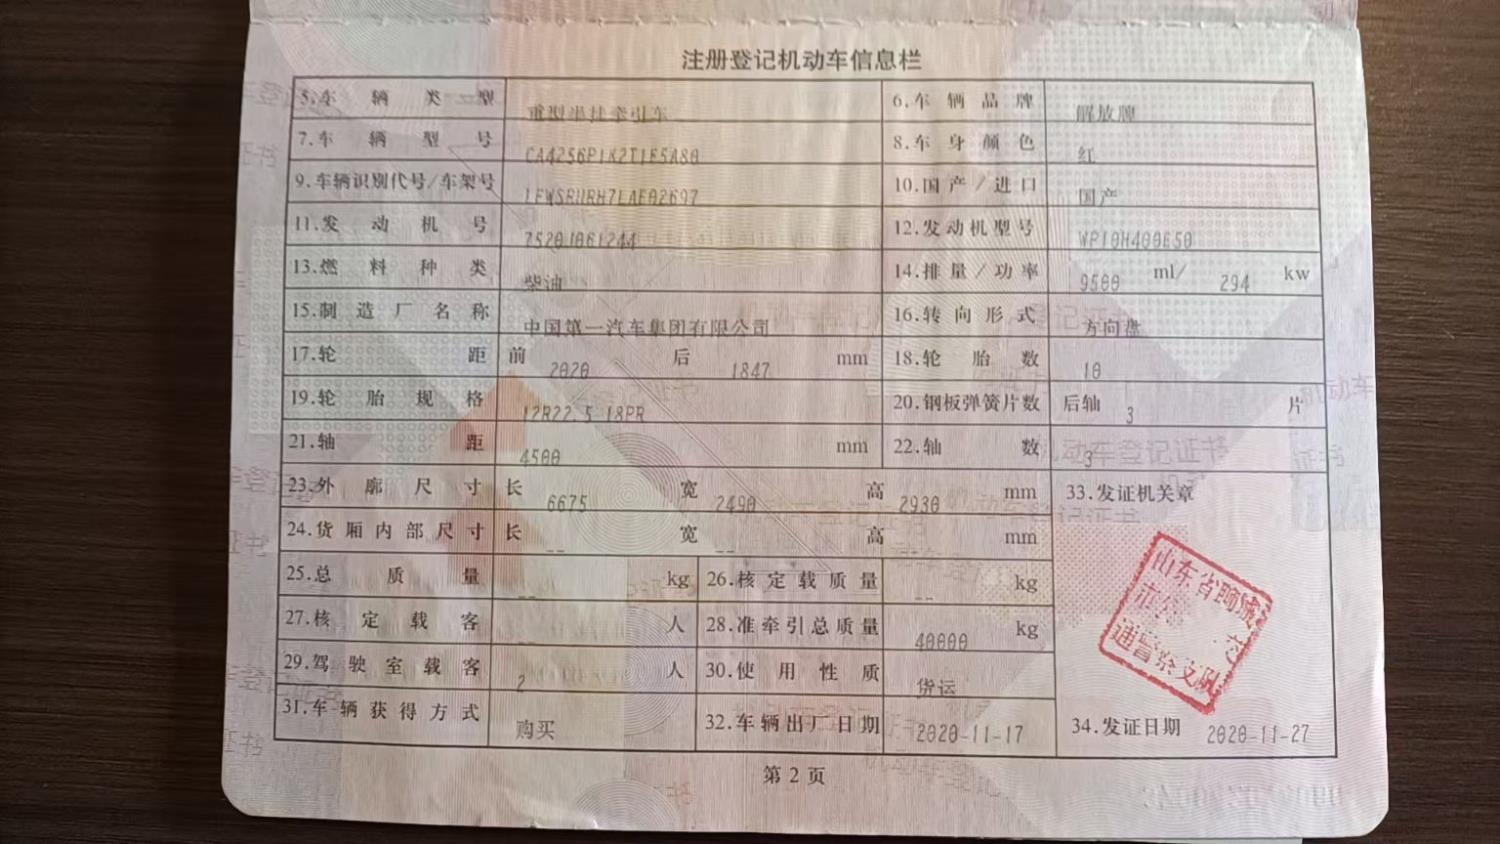 注册登记机动车信息栏
5.车辆类型 重型半挂牵引车 6.车辆品牌 解放牌
7.车辆型号 CA4256P1K2T1E5A80 8.车身颜色 红
9.车辆识别代号/车架号 LFWSRURH7LAE02697 10.国产/进口 国产
11.发动机号 75201061244 12.发动机型号 WP10H400E50
13.燃料种类 柴油 14.排量/功率 9500 ml/ 294 kw
15.制造厂名称 中国第一汽车集团有限公司 16.转向形式 方向盘
17.轮距 前 2020 后 1847 mm 18.轮胎数 10
19.轮胎规格 12R22.5 18PR 20.钢板弹簧片数 后轴 3 片
21.轴距 4500 mm 22.轴数 3
23.外廓尺寸 长 6675 宽 2490 高 2930 mm 33.发证机关章
24.货厢内部尺寸 长 -- 宽 -- 高 -- mm
25.总质量 -- kg 26.核定载质量 -- kg
27.核定载客 -- 人 28.准牵引总质量 40000 kg
山东省聊城
市公 交
通警察支队
29.驾驶室载客 2 人 30.使用性质 货运
31.车辆获得方式 购买 32.车辆出厂日期 2020-11-17 34.发证日期 2020-11-27
第2页